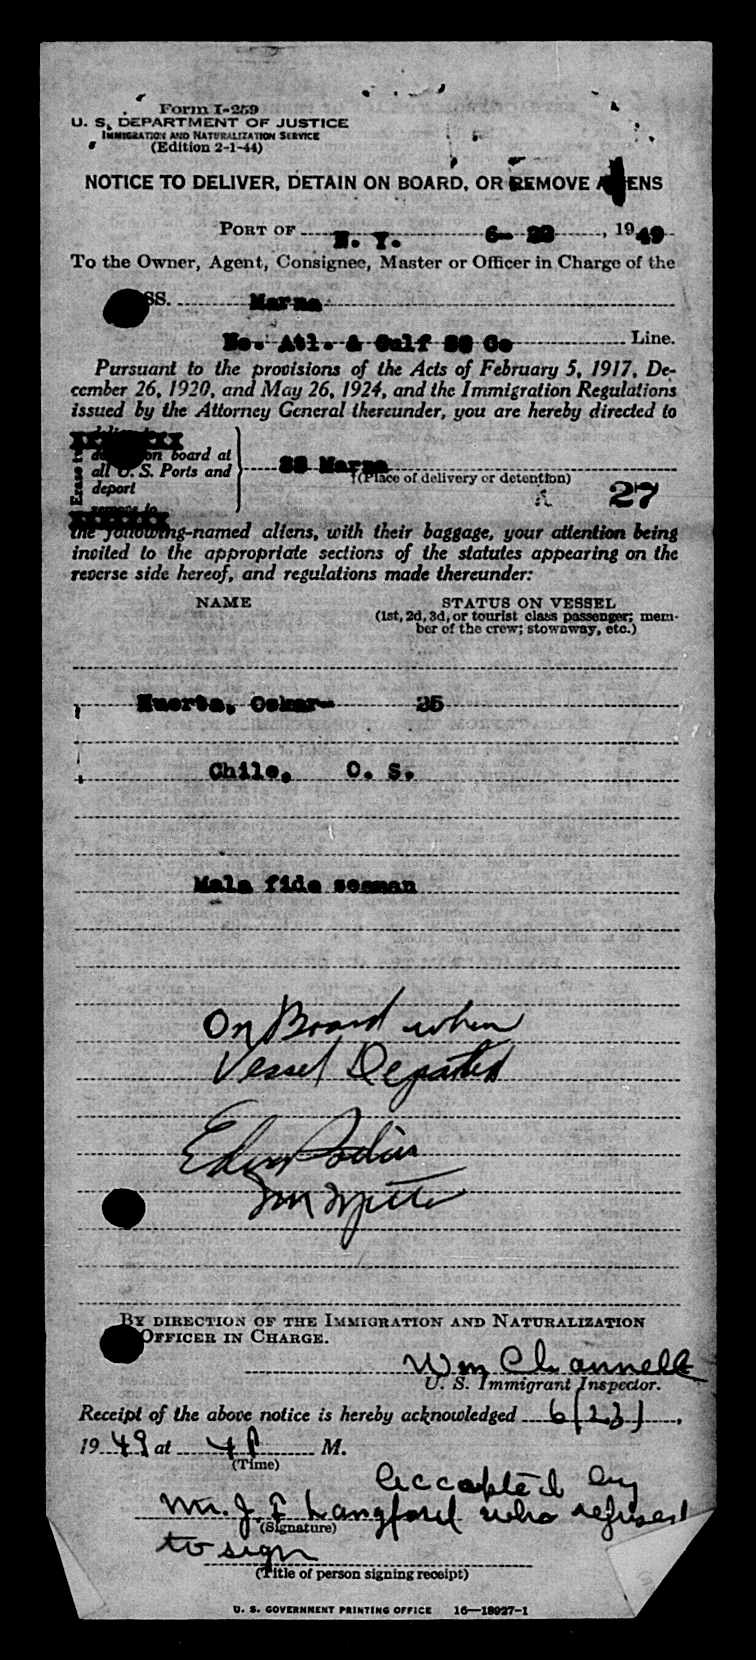 Form I-259
U. S. DEPARTMENT OF JUSTICE
IMMIGRATION AND NATURALIZATION SERVICE
(Edition 2-1-44)
NOTICE TO DELIVER, DETAIN ON BOARD, OR REMOVE ALIENS
PORT OF N. Y. 6- 22, 1949
To the Owner, Agent, Consignee, Master or Officer in Charge of the
SS. Marna
No. Atl. & Gulf SS Co Line.
Pursuant to the provisions of the Acts of February 5, 1917, De-
cember 26, 1920, and May 26, 1924, and the Immigration Regulations
issued by the Attorney General thereunder, you are hereby directed to
on board at
all U. S. Ports and
deport
SS Marna
(Place of delivery or detention)
27
the following-named aliens, with their baggage, your attention being
invited to the appropriate sections of the statutes appearing on the
reverse side hereof, and regulations made thereunder:
NAME STATUS ON VESSEL
(1st, 2d, 3d, or tourist class passenger; mem-
ber of the crew; stowaway, etc.)
Huerta, Oskar- 25
Chile, O. S.
Mala fide seaman
On Board when
Vessel Departed
BY DIRECTION OF THE IMMIGRATION AND NATURALIZATION
OFFICER IN CHARGE.
Wm Channell
U. S. Immigrant Inspector.
Receipt of the above notice is hereby acknowledged 6/23/,
1949 at 4P M.
(Time)
Accepted by
Mr. J. F Langford who refused
(Signature)
to sign
(Title of person signing receipt)
U. S. GOVERNMENT PRINTING OFFICE 16—18027-1